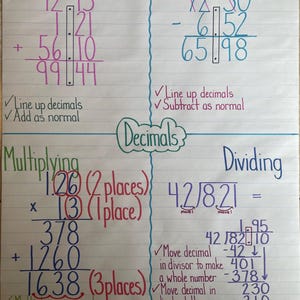 1 21
+ 56 10
99 44
✓Line up decimals
✓Add as normal
- 6 52
65 98
✓Line up decimals
✓Subtract as normal
Decimals
Multiplying
1.26 (2 places)
x 1.3 (1 place)
378
+ 1260
1.638 (3 places)
Dividing
4.2/8.21 =
1.95
42/82.10
✓Move decimal
in divisor to make
a whole number
✓Move decimal in
- 42
401
- 378
230